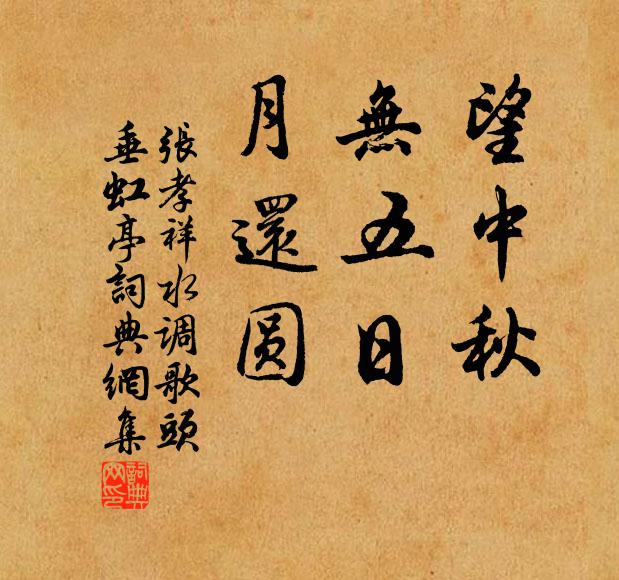 望中秋
無五日
月還圓
張孝祥水调歌頭
垂虹亭詞典網集
詞典
网印